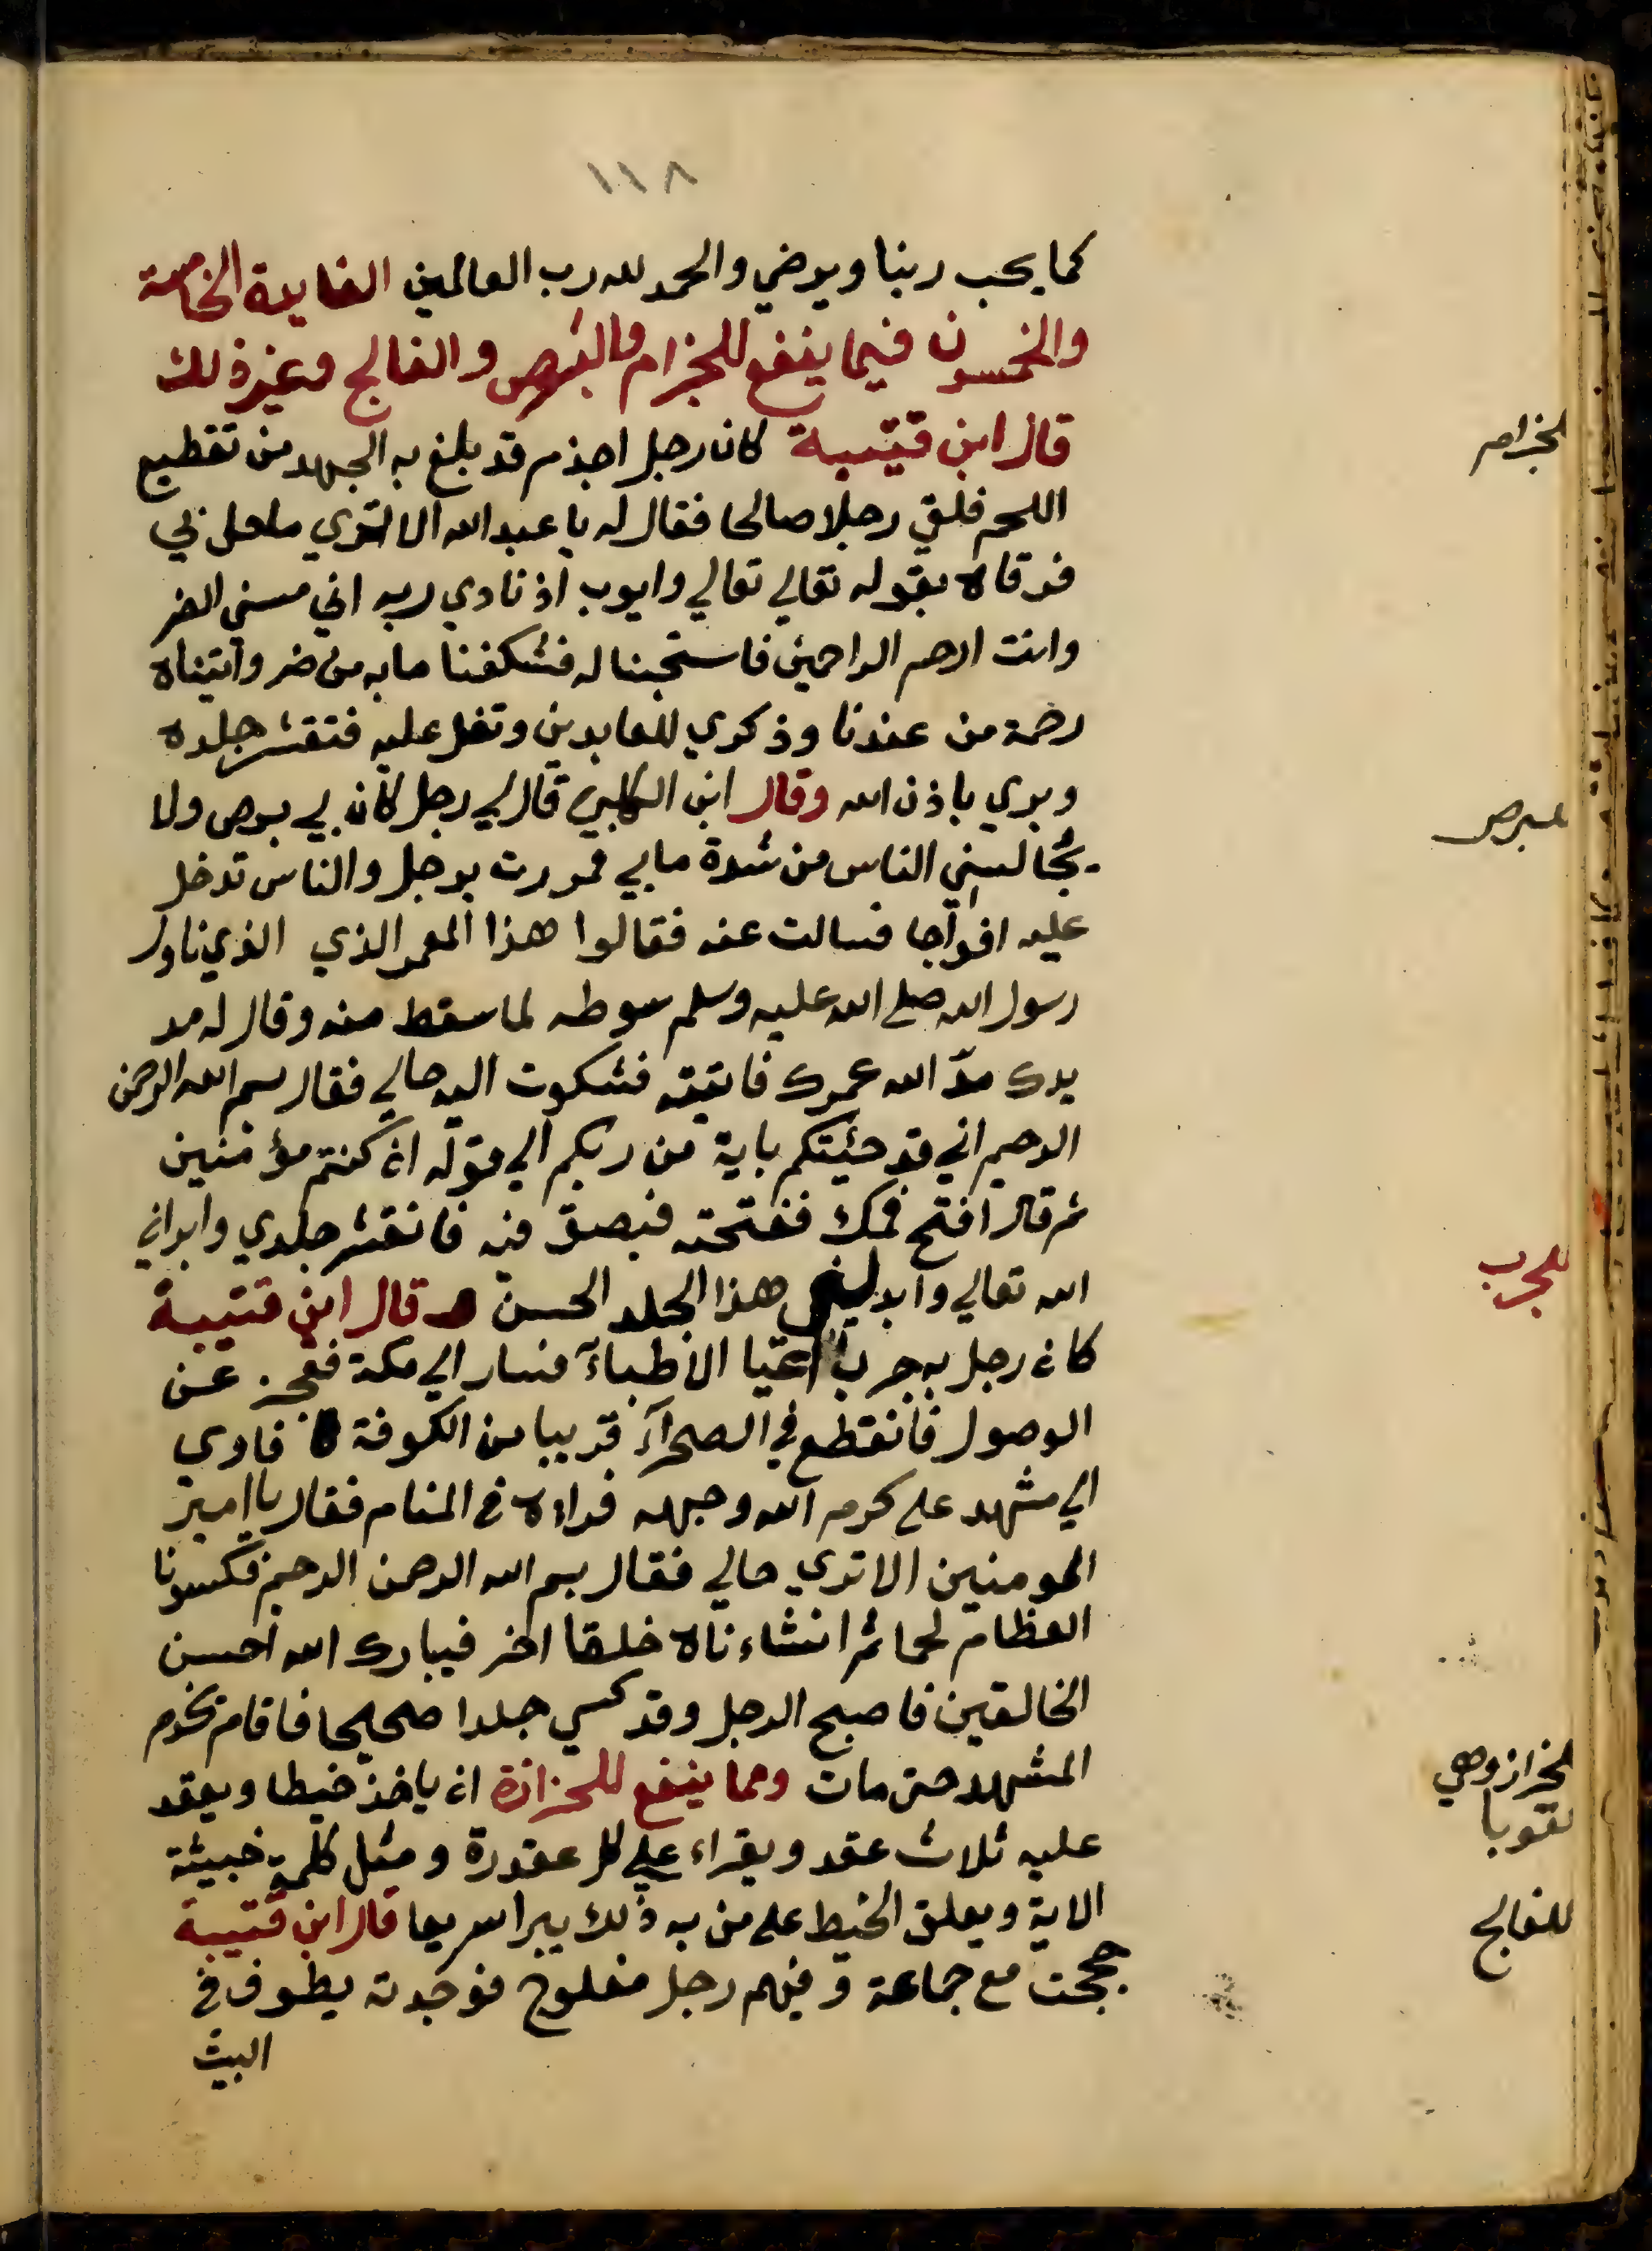 ١١٨
كما يحب ربنا ويرضي والحمد لله رب العالمين الفايدة الخامسة
والخمسون فيما ينفع للجذام والبرص والفالج وغير ذلك
قال ابن قتيبة كان رجل اجذم قد بلغ به الجهد من تقطيع
اللحم فلقي رجلا صالحا فقال له يا عبد الله الا تري ما حل بي
فرقاه بقوله تعالي تعالي وايوب اذ نادي ربه اني مسني الضر
وانت ارحم الراحمين فاستجبنا له فشكفنا ما به من ضر واتيناه
رحمة من عندنا وذكري للعابدين وتفل عليه فتقشر جلده
وبري باذن الله وقال ابن الكلبي قال لي رجل كان بي برص ولا
يجالسني الناس من شدة ما بي فمررت برجل والناس تدخل
عليه افواجا فسالت عنه فقالوا هذا المعمر الذي الذي ناول
رسول الله صلي الله عليه وسلم سوطه لما سقط منه وقال له مد
يدك مدّ الله عمرك فاتيته فشكوت اليه حالي فقال بسم الله الرحمن
الرحيم اني قد جئيتكم باية من ربكم الي قوله ان كنتم مؤمنين
ثم قال افتح فمك ففتحته فبصق فيه فانقشر جلدي وابراني
الله تعالي وابدلني هذا الجلد الحسن قال ابن قتيبة
كان رجل به جرب اعيا الاطباء فسار الي مكة فعجز عن
الوصول فانقطع في الصحرآء قريبا من الكوفة فاوي
الي مشهد علي كرم الله وجهه فراءه في المنام فقال يا امير
المومنين الا تري حالي فقال بسم الله الرحمن الرحيم فكسونا
العظام لحما ثم انشاءناه خلقا اخر فيبارك الله احسن
الخالقين فاصبح الرجل وقد كسي جلدا صحيحا فاقام يخدم
المشهد حتي مات ومما ينفع للحزازة ان ياخذ خيطا ويعقد
عليه ثلاث عقد ويقراء علي كل عقدرة ومثل كلمة خبيثة
الاية ويعلق الخيط علي من به ذلك يبرا سريعا قال ابن قتيبة
حججت مع جماعة وفيهم رجل مفلوج فوجدته يطوف في
البيت
للجذام
للبرص
للجرب
للحزاز وهي
القوبا
للفالج